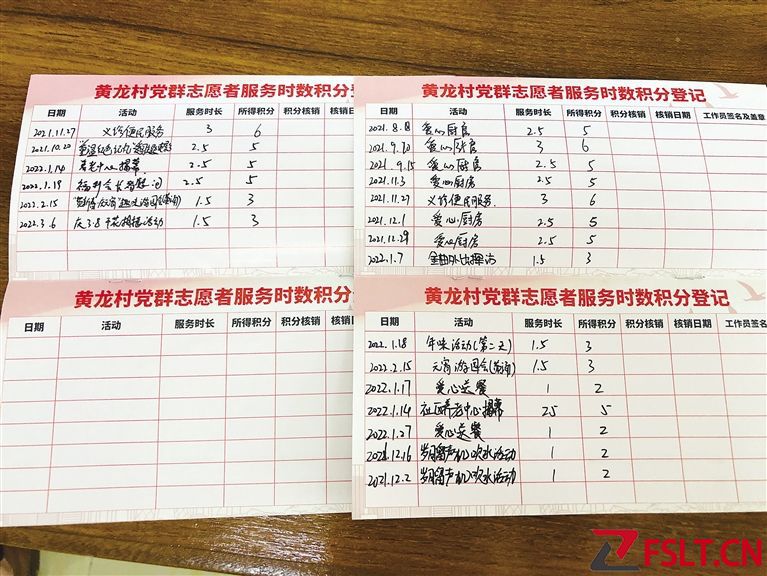 黄龙村党群志愿者服务时数积分登
日期 活动 服务时长 所得积分 积分核销 核
2021.11.27 义诊便民服务 3 6
2021.10.20 2.5 5
2022.1.14 养老中心揭幕 2.5 5
2022.1.19 2.5 5
2022.2.15 1.5 3
2022.3.6 庆3.8 活动 1.5 3
黄龙村党群志愿者服务时数积分登记
日期 活动 服务时长 所得积分 积分核销 核销日期 工作员签名及盖章
2021.8.8 爱心厨房 2.5 5
2021.9.10 爱心厨房 3 6
2021.9.15 爱心厨房 2.5 5
2021.11.3 爱心厨房 2.5 5
2021.11.27 义诊便民服务 3 6
2021.12.1 爱心厨房 2.5 5
2021.12.29 爱心厨房 2.5 5
2022.1.7 探访 1.5 3
黄龙村党群志愿者服务时数积分
日期 活动 服务时长 所得积分 积分核销 核销
黄龙村党群志愿者服务时数积分登记
日期 活动 服务时长 所得积分 积分核销 核销日期 工作员签
2022.1.18 年味活动(第二天) 1.5 3
2022.2.15 元宵游园会 1.5 3
2022.1.17 爱心送餐 1 2
2022.1.14 社区养老中心揭幕 2.5 5
2022.1.27 爱心送餐 1 2
2021.12.16 岁月留声机吹水活动 1 2
2021.12.2 岁月留声机吹水活动 1 2
FSLT.CN